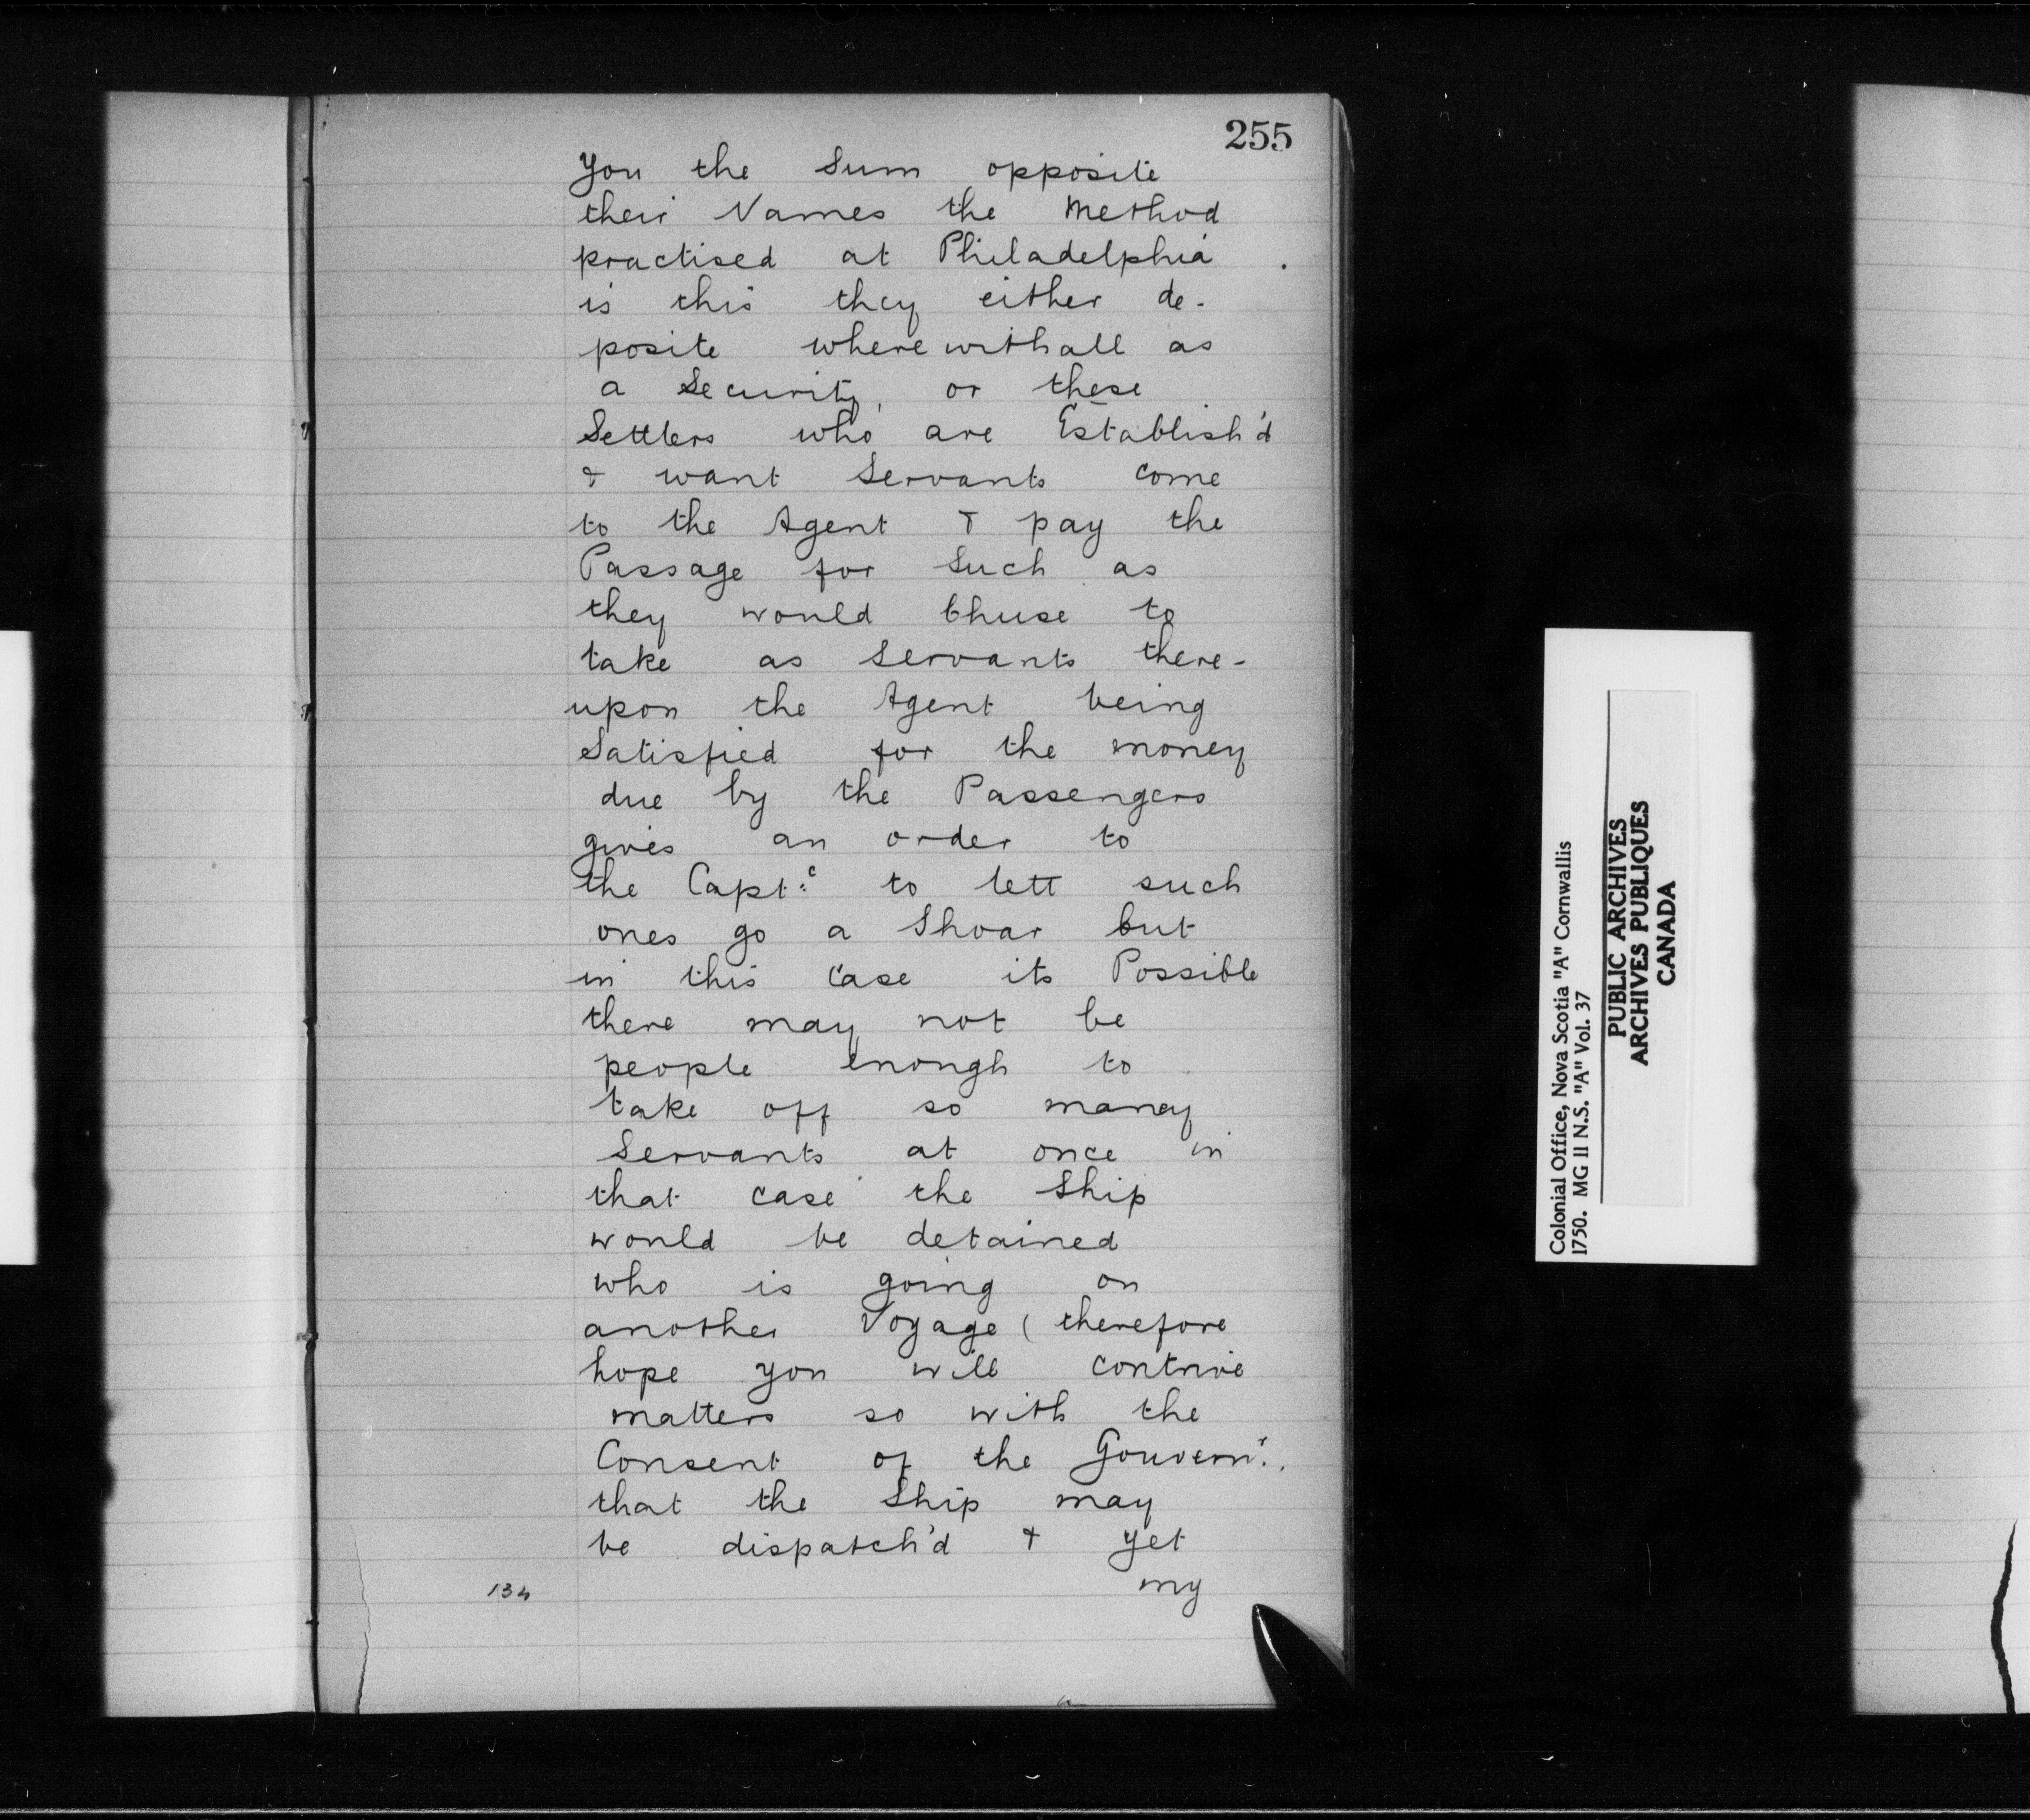 255
You the Sum opposite
their Names the Method
practised at Philadelphia .
is this they either de-
posite wherewithall as
a Security, or these
Settlers who are Establish'd
& want Servants come
to the Agent & pay the
Passage for Such as
they would Chuse to
take as Servants there-
upon the Agent being
Satisfied for the money
due by the Passengers
gives an order to
the Capt:
to lett such
ones go a Shoar but
in this Case its Possible
there may not be
people enough to
take off so many
Servants at once in
that case the Ship
would be detained
who is going on
another Voyage ( therefore
hope you will contrive
matters so with the
Consent of the Gouvernr.
that the Ship may
be dispatch'd & yet
my
134
Colonial Office, Nova Scotia "A" Cornwallis
1750. MG II N.S. "A" Vol. 37
PUBLIC ARCHIVES
ARCHIVES PUBLIQUES
CANADA